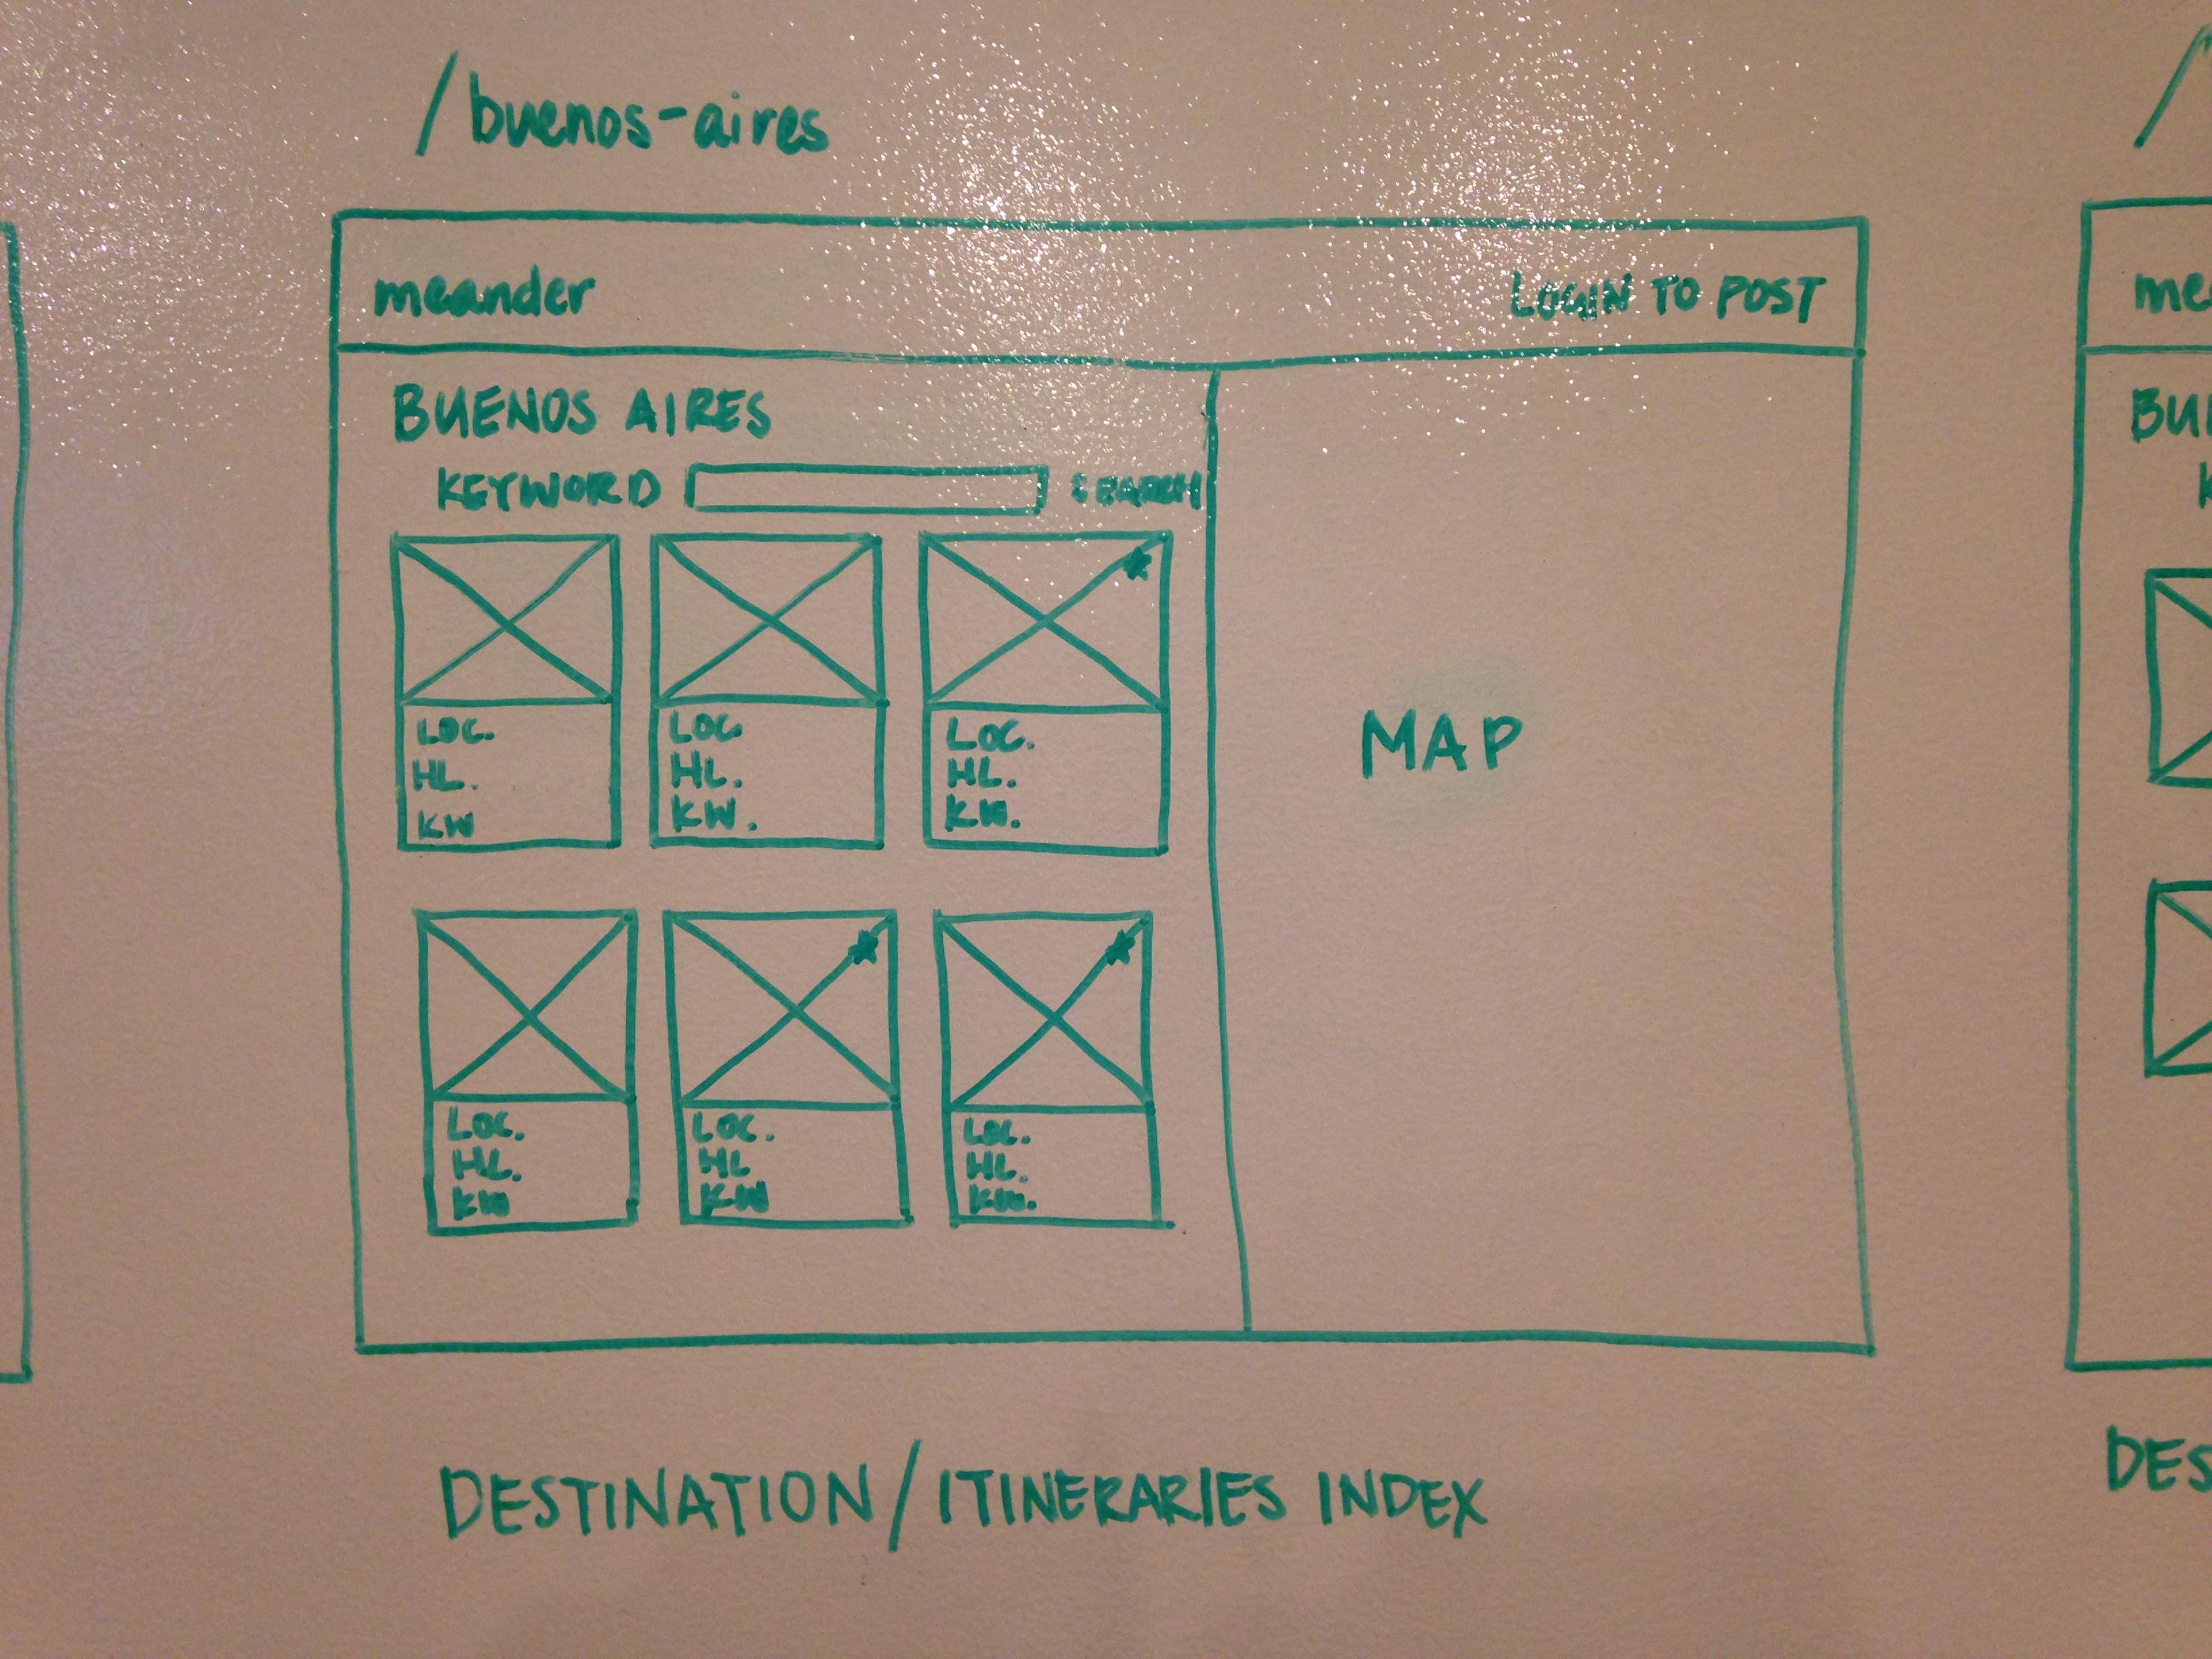 /buenos-aires
meander
LOGIN TO POST
BUENOS AIRES
KEYWORD
SEARCH
LOC.
HL.
KW
LOC
HL.
KW.
LOC.
HL.
KW.
LOC.
HL.
KW
LOC.
HL
KW
LOC.
HL.
KW.
MAP
DESTINATION/ITINERARIES INDEX
/
me
BU
K
DES